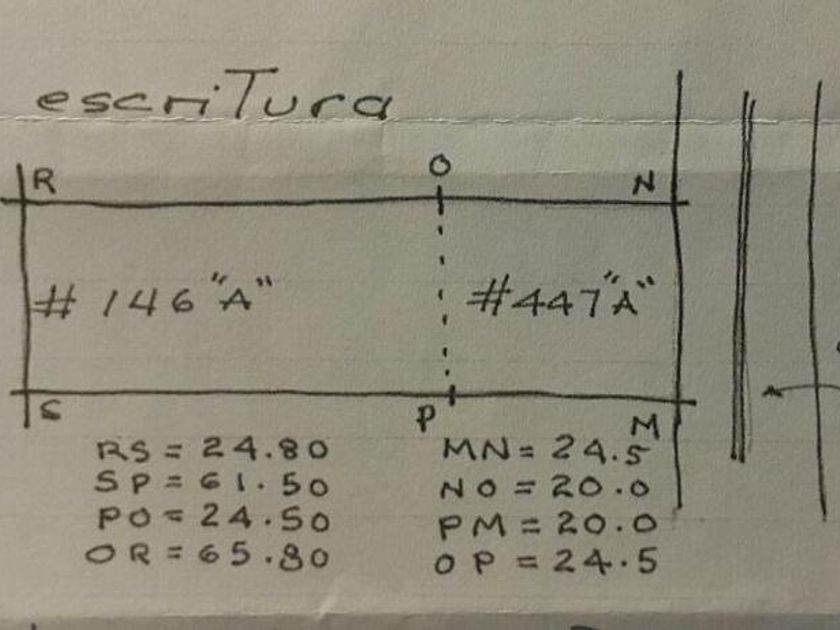 escriTura
R O N
# 146 "A" #447"A"
S P M
RS = 24.80 MN = 24.5
SP = 61.50 NO = 20.0
PO = 24.50 PM = 20.0
OR = 65.80 OP = 24.5